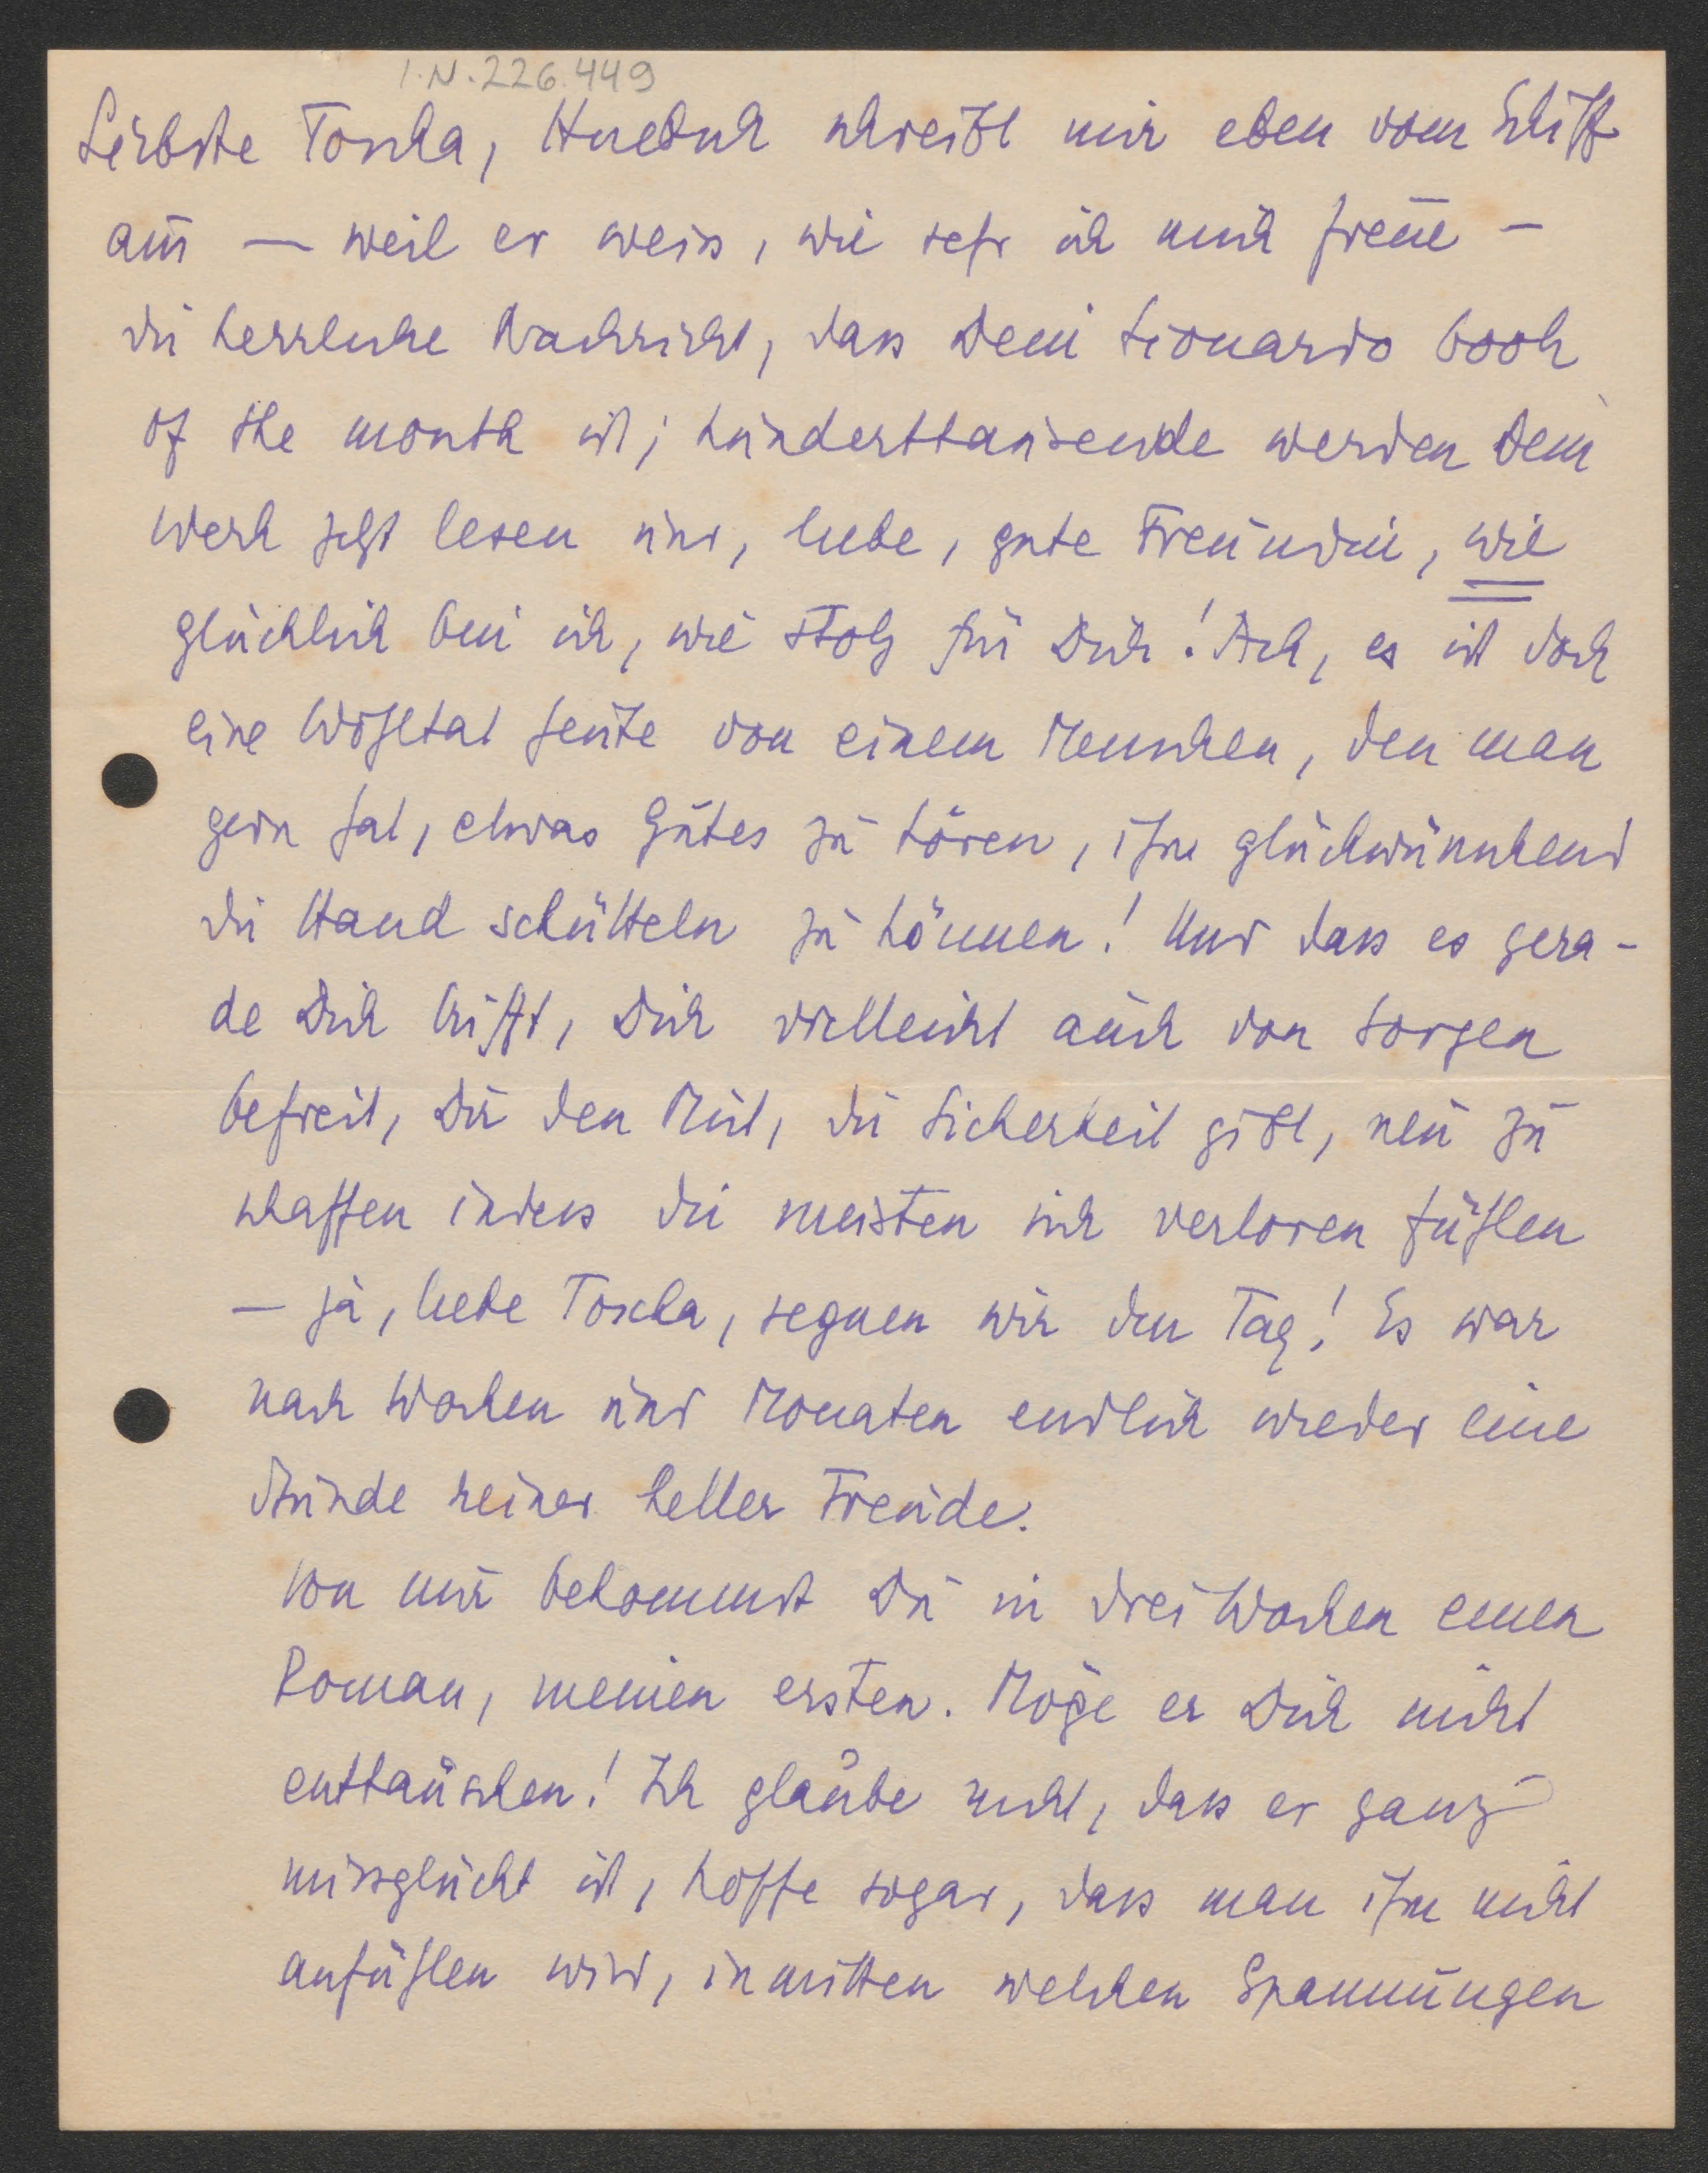 I.N. 226.449
Liebste Toscha, Huebsch schreibt mir eben vom Schiff
aus — weil er weiss, wie sehr ich mich freue —
die herrliche Nachricht, dass Dein Lionardo book
of the month ist; hunderttausende werden Dein
Werk jetzt lesen und, liebe, gute Freundin, wie
glücklich bin ich, wie stolz für Dich! Ach, es ist doch
eine Wohltat heute von einem Menschen, den man
gern hat, etwas Gutes zu hören, ihm glückwünschend
die Hand schütteln zu können! Und dass es gera-
de Dich trifft, Dich vielleicht auch von Sorgen
befreit, Dir den Mut, die Sicherheit gibt, neu zu
schaffen indess die meisten sich verloren fühlen
— ja, liebe Toscha, segnen wir den Tag! Es war
nach Wochen und Monaten endlich wieder eine
Stunde reiner heller Freude.
Von mir bekommst Du in drei Wochen einen
Roman, meinen ersten. Möge er Dich nicht
enttäuschen! Ich glaube nicht, dass er ganz
missglückt ist, hoffe sogar, dass man ihm nicht
anfühlen wird, inmitten welchen Spannungen